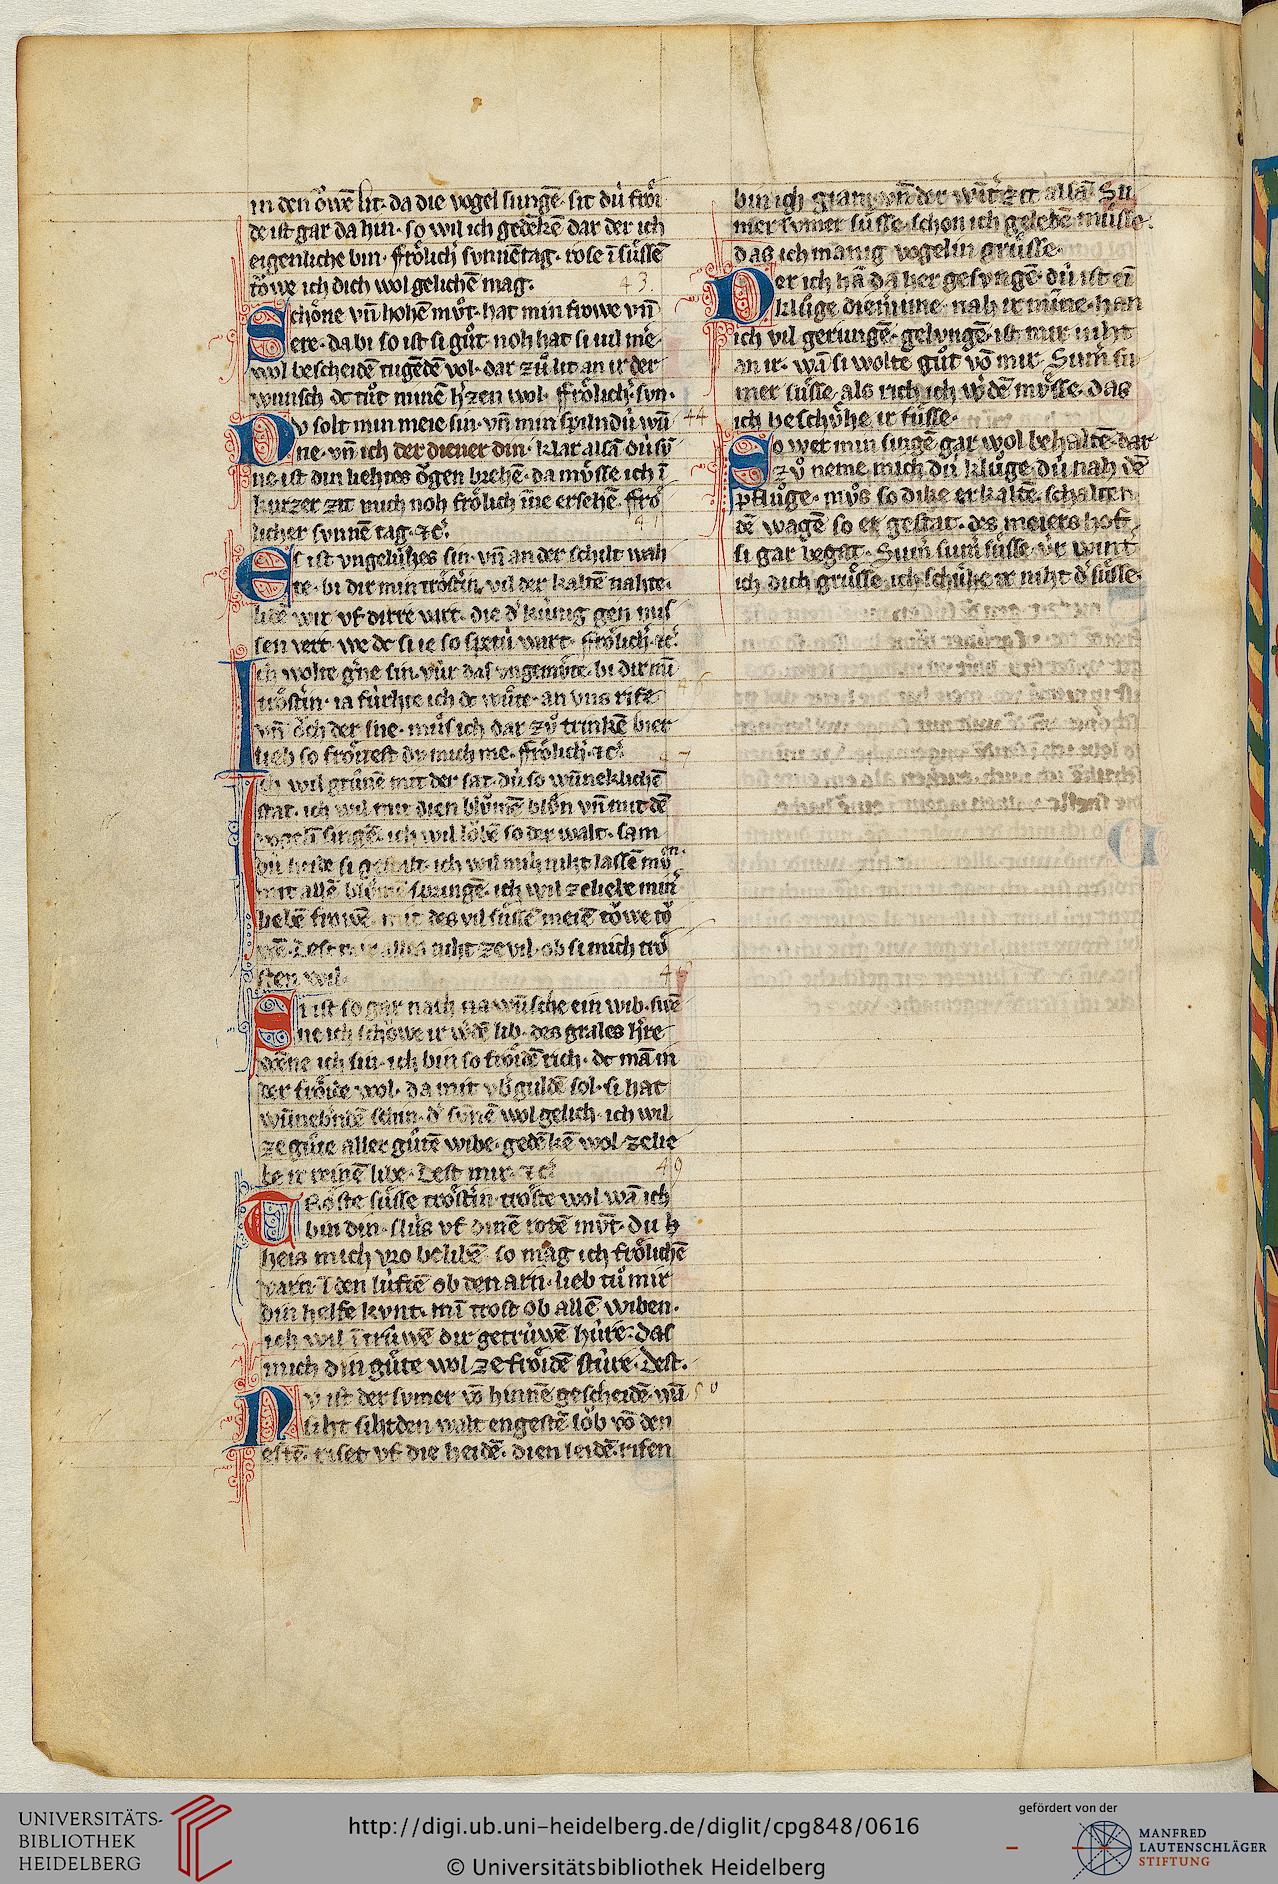 in den oͮwē lit· da die vogel singē· sit dú froͤi
de ist gar da hin· so wil ich gedēkē dar der ich
eigenliche bin· froͤlich̛ sunnētag· rose ī suͤssē
toͮwe ich dich wol gelichē mag·
43.
Schoͤne vn̄ hohē muͦt· hat min frowe vn̄
ere· da bi so ist si guͦt· noh hat si vil me
wol bescheidē tugēdē vol· dar zuͦ lit an ir der
wunsch dc tuͦt minē h̛zen wol· froͤlich̛· sun·
Dv solt min meie sin· vn̄ min spilndú wū
44
ne· vn̄ ich der diener din· klar alsā dú sv̄
ne ist din liehtes oͮgen brehē· da muͤsse ich ī
kurzer zit mich noh froͤlich īne ersehē· froͤ
licher sunnē tag· ⁊c̛·
Es ist vngelúkes sin· vn̄ an der schilt wah
te· bi dir min troͤsterin· vil der kaltē nahte·
lidē wir vf dirre vart· die d̛ kúnig gen mis
sen vert· we dc si ie so spete wart· froͤlich̛· ⁊c̛·
Ich wolte g̛ne sin· vúr das vngemuͤte· bi dir mī
troͤsterin· ia fúrhte ich dc wuͤte· an vns rife
vn̄ oͮch der sne· muͦs ich dar zuͦ trinkē bier
lieb so froͤwest du mich me· froͤlich̛· ⁊c̛·
47
Ich wil gruͤnē mit der sat· dú so wúneklichē
stat· ich wil mit dien bluͦmē bluͤn vn̄ mit dē
vogelī singē· ich wil loͮbē so der walt· sam
dú heide si gestalt· ich wil mih niht lassē muͤn·
mit allē bluͦmē springē· ich wil ze liebe minr
liebē frowē· mit des vil suͤssē meiē toͮwe toͮ
wē· Dest mir alles niht ze vil· ob si mich troͤ
sten wil·
48
Si ist so gar nach na wūsche ein wib· swē
ne ich schoͮwe ir w̛dē lib· des grales h̛re
wēne ich sin· ich bin so froͤidē rich· dc mā in
der froͤide wol· da mit vb̛gúldē sol· si hat
wūneb̛ndē schin· d̛ sunnē wol gelich· ich wil
ze guͤte aller guͤtē wibe· gedēkē wol ze lie
be ir reinē libe· Dest mir· ⁊c̛·
49
Troͤste suͤsse troͤst̛in· troͤste wol wā ich
bin din· slús vf dinē rotē mūt· du h
heis mich vro belibē· so mag ich froͤlichē
varn ī den lúftē ob den arn· lieb tuͦ mir
din helfe kvnt· mī trost ob allē wiben·
ich wil ī trúwē dir getrúwē húre· das
mich din guͤte wol ze froͤidē stúre· Dest·
Nv ist der sumer vō hinnē gescheidē· wū
50
siht sihtden walt engestē loͮb vō den
estē· riset vf die heidē· dien leidē· rifen
bin ich gram· vn̄ der wīt̛zit allā· Su
mer sumer suͤsse· schon ich gelebe muͤsse·
das ich manig vogelin gruͤsse·
Der ich hā da her gesungē· dú ist eī
kluͦge dienune· nah ir mīne· han
ich vil gerungē· gelungē· ist mir niht
an ir· wā si wolte guͦt vō mir· Sum̛ su
mer suͤsse· als rich ich w̛dē muͤsse· das
ich beschuͦhe ir fuͤsse·
So wer min singē gar wol behaltē· dar
zuͦ neme mich dú kluͦge· dú nah dē
pfluͦge· muͦs so dike erkaltē· schalten
dē wagē so er gestat· des meiers hof·
si gar begat· Sum̛ sum̛ suͤsse· vúr wint̛
ich dich gruͤsse· ich schuͦhe ir niht d̛ fuͤsse·
UNIVERSITÄTS-
BIBLIOTHEK
HEIDELBERG
http://digi.ub.uni-heidelberg.de/diglit/cpg848/0616
© Universitätsbibliothek Heidelberg
gefördert von der
MANFRED
LAUTENSCHLÄGER
STIFTUNG